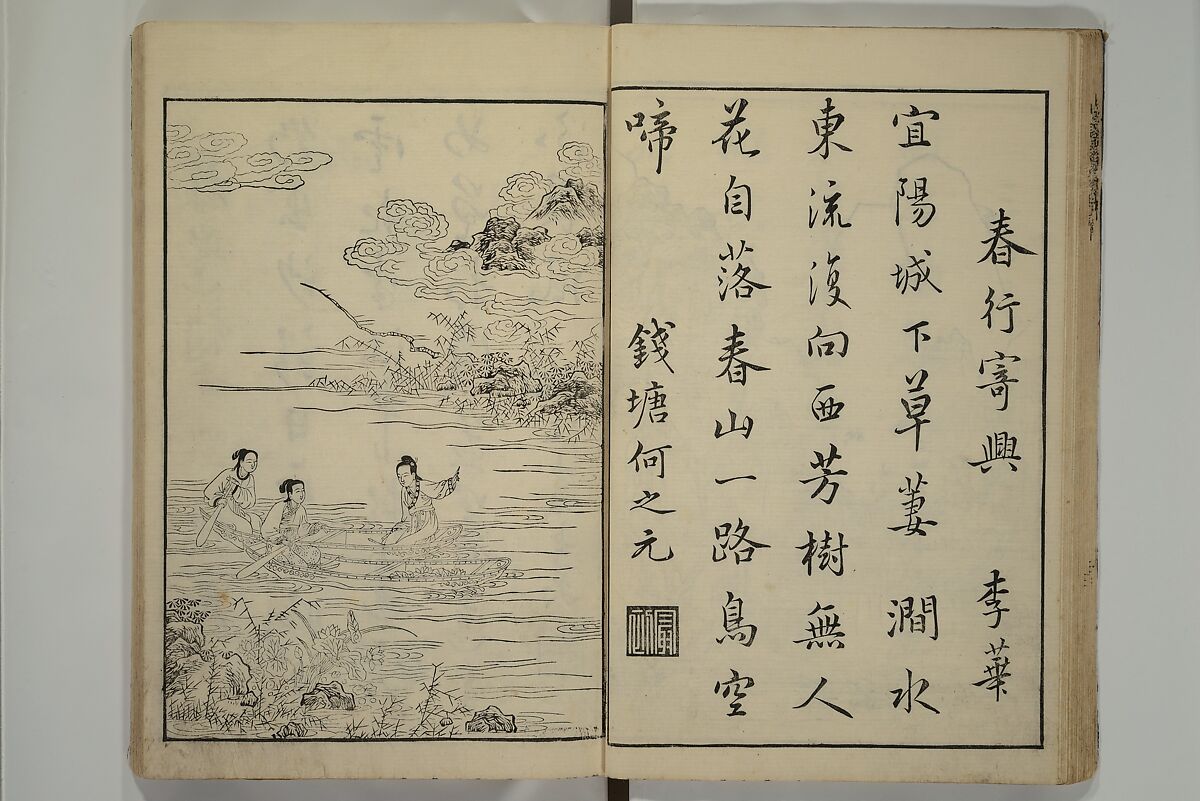 春行寄興 李華
宜陽城下草萋 澗水
東流復向西芳樹無人
花自落春山一路鳥空
啼 錢塘何之元